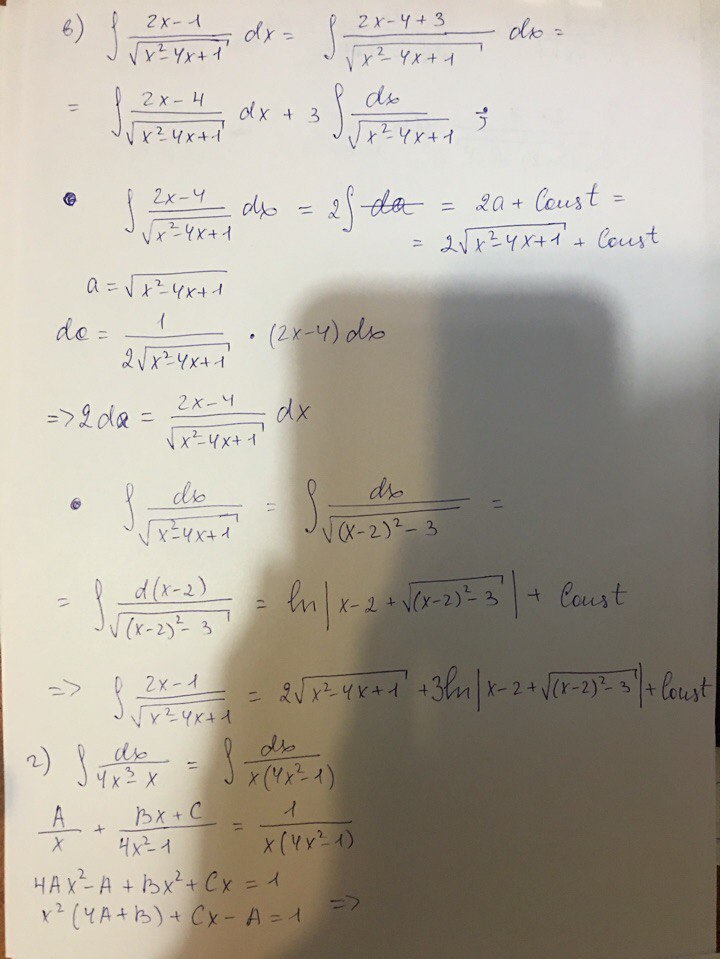 в) ∫ (2x-1)/√(x²-4x+1) dx = ∫ (2x-4+3)/√(x²-4x+1) dx =
= ∫ (2x-4)/√(x²-4x+1) dx + 3 ∫ dx/√(x²-4x+1) ;
• ∫ (2x-4)/√(x²-4x+1) dx = 2∫ da = 2a + Const =
= 2√(x²-4x+1) + Const
a = √(x²-4x+1)
da = 1/(2√(x²-4x+1)) • (2x-4) dx
=> 2da = (2x-4)/√(x²-4x+1) dx
• ∫ dx/√(x²-4x+1) = ∫ dx/√((x-2)²-3) =
= ∫ d(x-2)/√((x-2)²-3) = ln|x-2+√((x-2)²-3)| + Const
=> ∫ (2x-1)/√(x²-4x+1) = 2√(x²-4x+1) + 3ln|x-2+√((x-2)²-3)| + Const
г) ∫ dx/(4x³-x) = ∫ dx/(x(4x²-1))
A/x + (Bx+C)/(4x²-1) = 1/(x(4x²-1))
4Ax²-A+Bx²+Cx=1
x²(4A+B)+Cx-A=1 =>